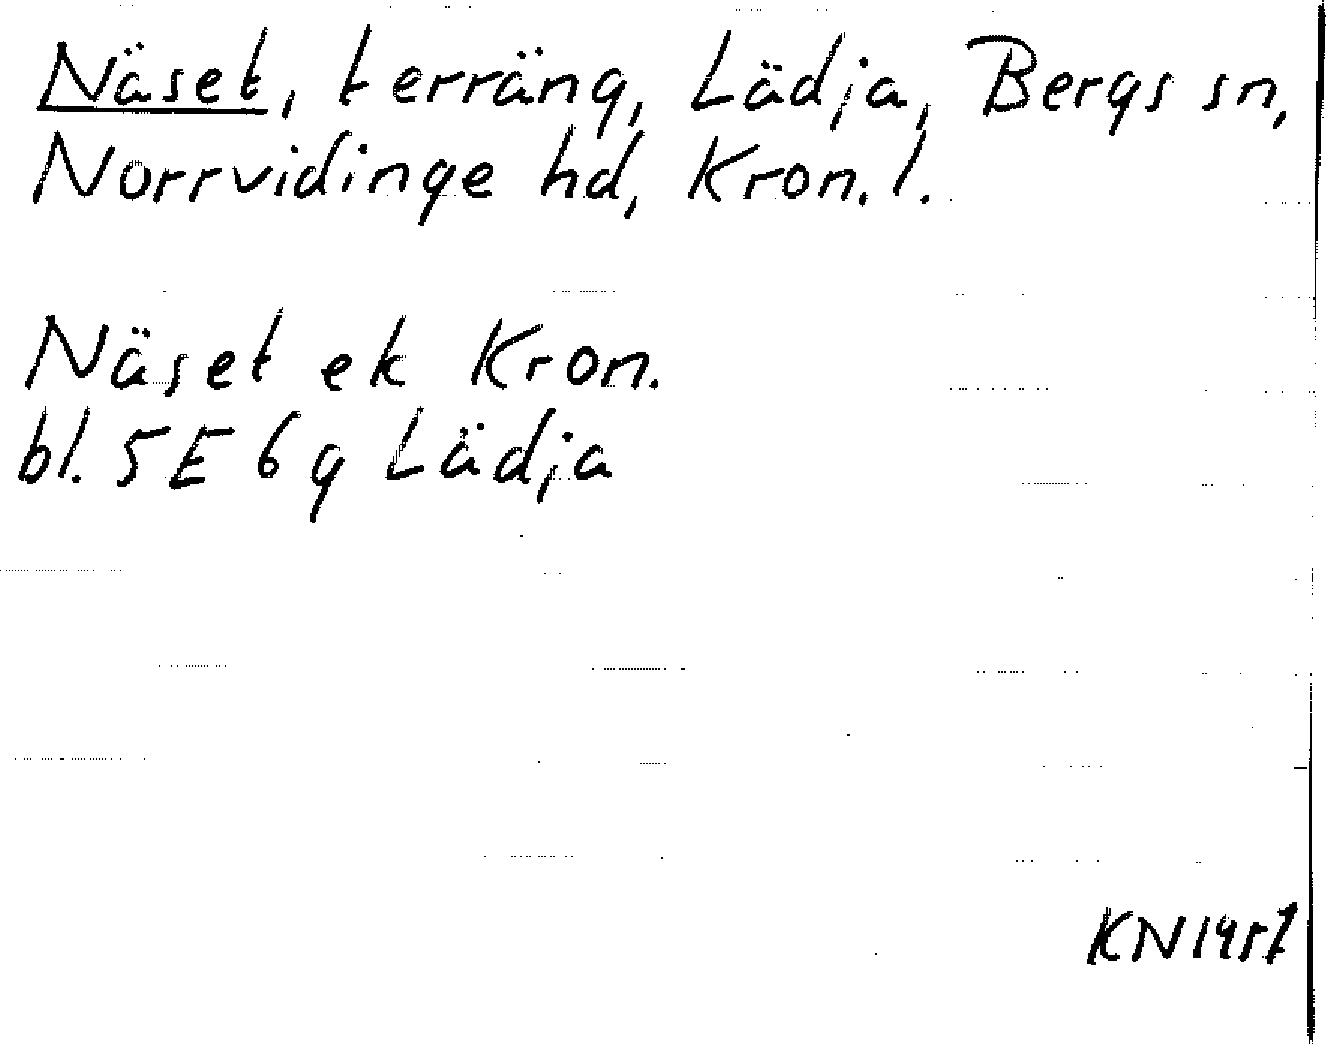 Näset, terräng, Lädja, Bergs sn,
Norrvidinge hd, Kron. l.
Näset ek Kron.
bl. 5E 6g Lädja
KN 1951